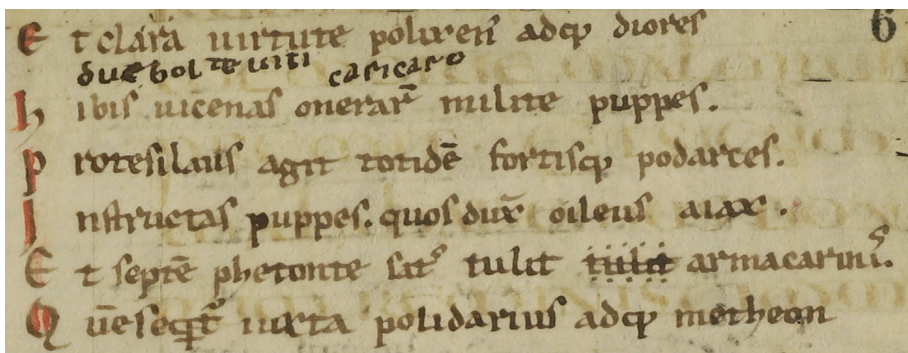 E t clara uirtute polixen̄ adqꝫ diores 6
due bol te uiti caricaro
h ibis uicenas onerar̄ milite puppes.
P rotesilaus agit totidē fortisqꝫ podarces.
I nstructas puppes. quos dux̄ oileus aiax.
E t septē phetonte sat᷒ tulit tulit armacarinis.
Q ūe seqͥt᷒ iuxta polidarius adqꝫ metheon